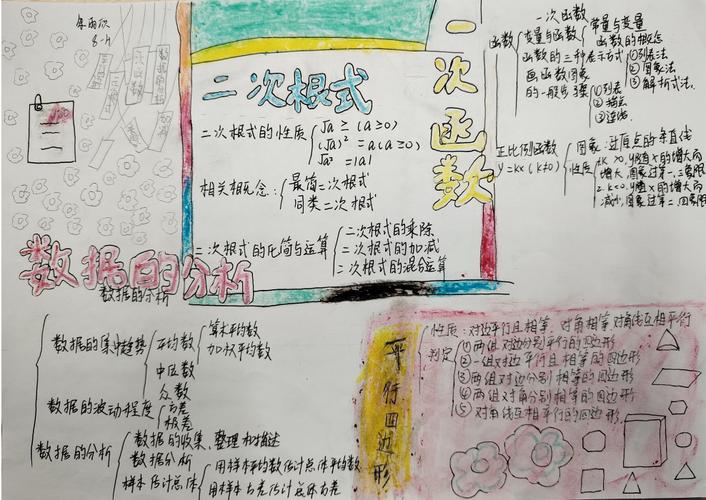 8-4
二次根式
二次根式的性质
√a ≥ (a≥0)
(√a)² = a(a≥0)
√a² = |a|
相关概念：
最简二次根式
同类二次根式
二次根式的化简与运算
二次根式的乘除
二次根式的加减
二次根式的混合运算
一次函数
一次函数
函数
变量与函数
常量与变量
函数的概念
函数的三种表示方式
①列表法
②图象法
③解析式法.
画函数图象
的一般步骤
①列表
②描点
③连线.
正比例函数
y=kx(k≠0)
图象:过原点的一条直线
性质
数据的分析
数据的分析
数据的集中趋势
平均数
算术平均数
加权平均数
中位数
众数
数据的波动程度
方差
极差
数据的分析
数据的收集、整理和描述
数据分析
样本估计总体
用样本平均数估计总体平均数
用样本方差估计总体方差
平行四边形
性质：对边平行且相等、对角相等、对角线互相平行
判定
①两组对边分别平行的四边形
②一组对边平行且相等的四边形
③两组对边分别相等的四边形
④两组对角分别相等的四边形
⑤对角线互相平行的四边形